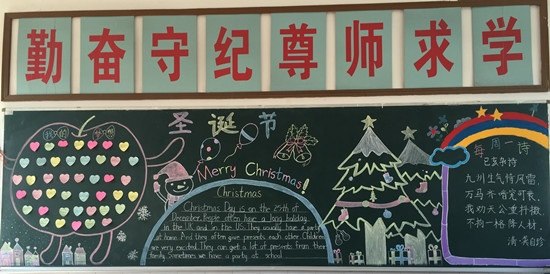 勤奋守纪尊师求学
圣诞节
Merry Christmas!
Christmas
Christmas Day is on the 25th of
December. People often have a long holiday
in the U.K and in the U.S. They usually have a party
at home. And they often give presents each other. Children
are very excited. They can get a lot of presents from their
family. Sometimes we have a party at school.
每周一诗
己亥杂诗
九州生气恃风雷,
万马齐喑究可哀。
我劝天公重抖擞,
不拘一格降人材。
清·龚自珍